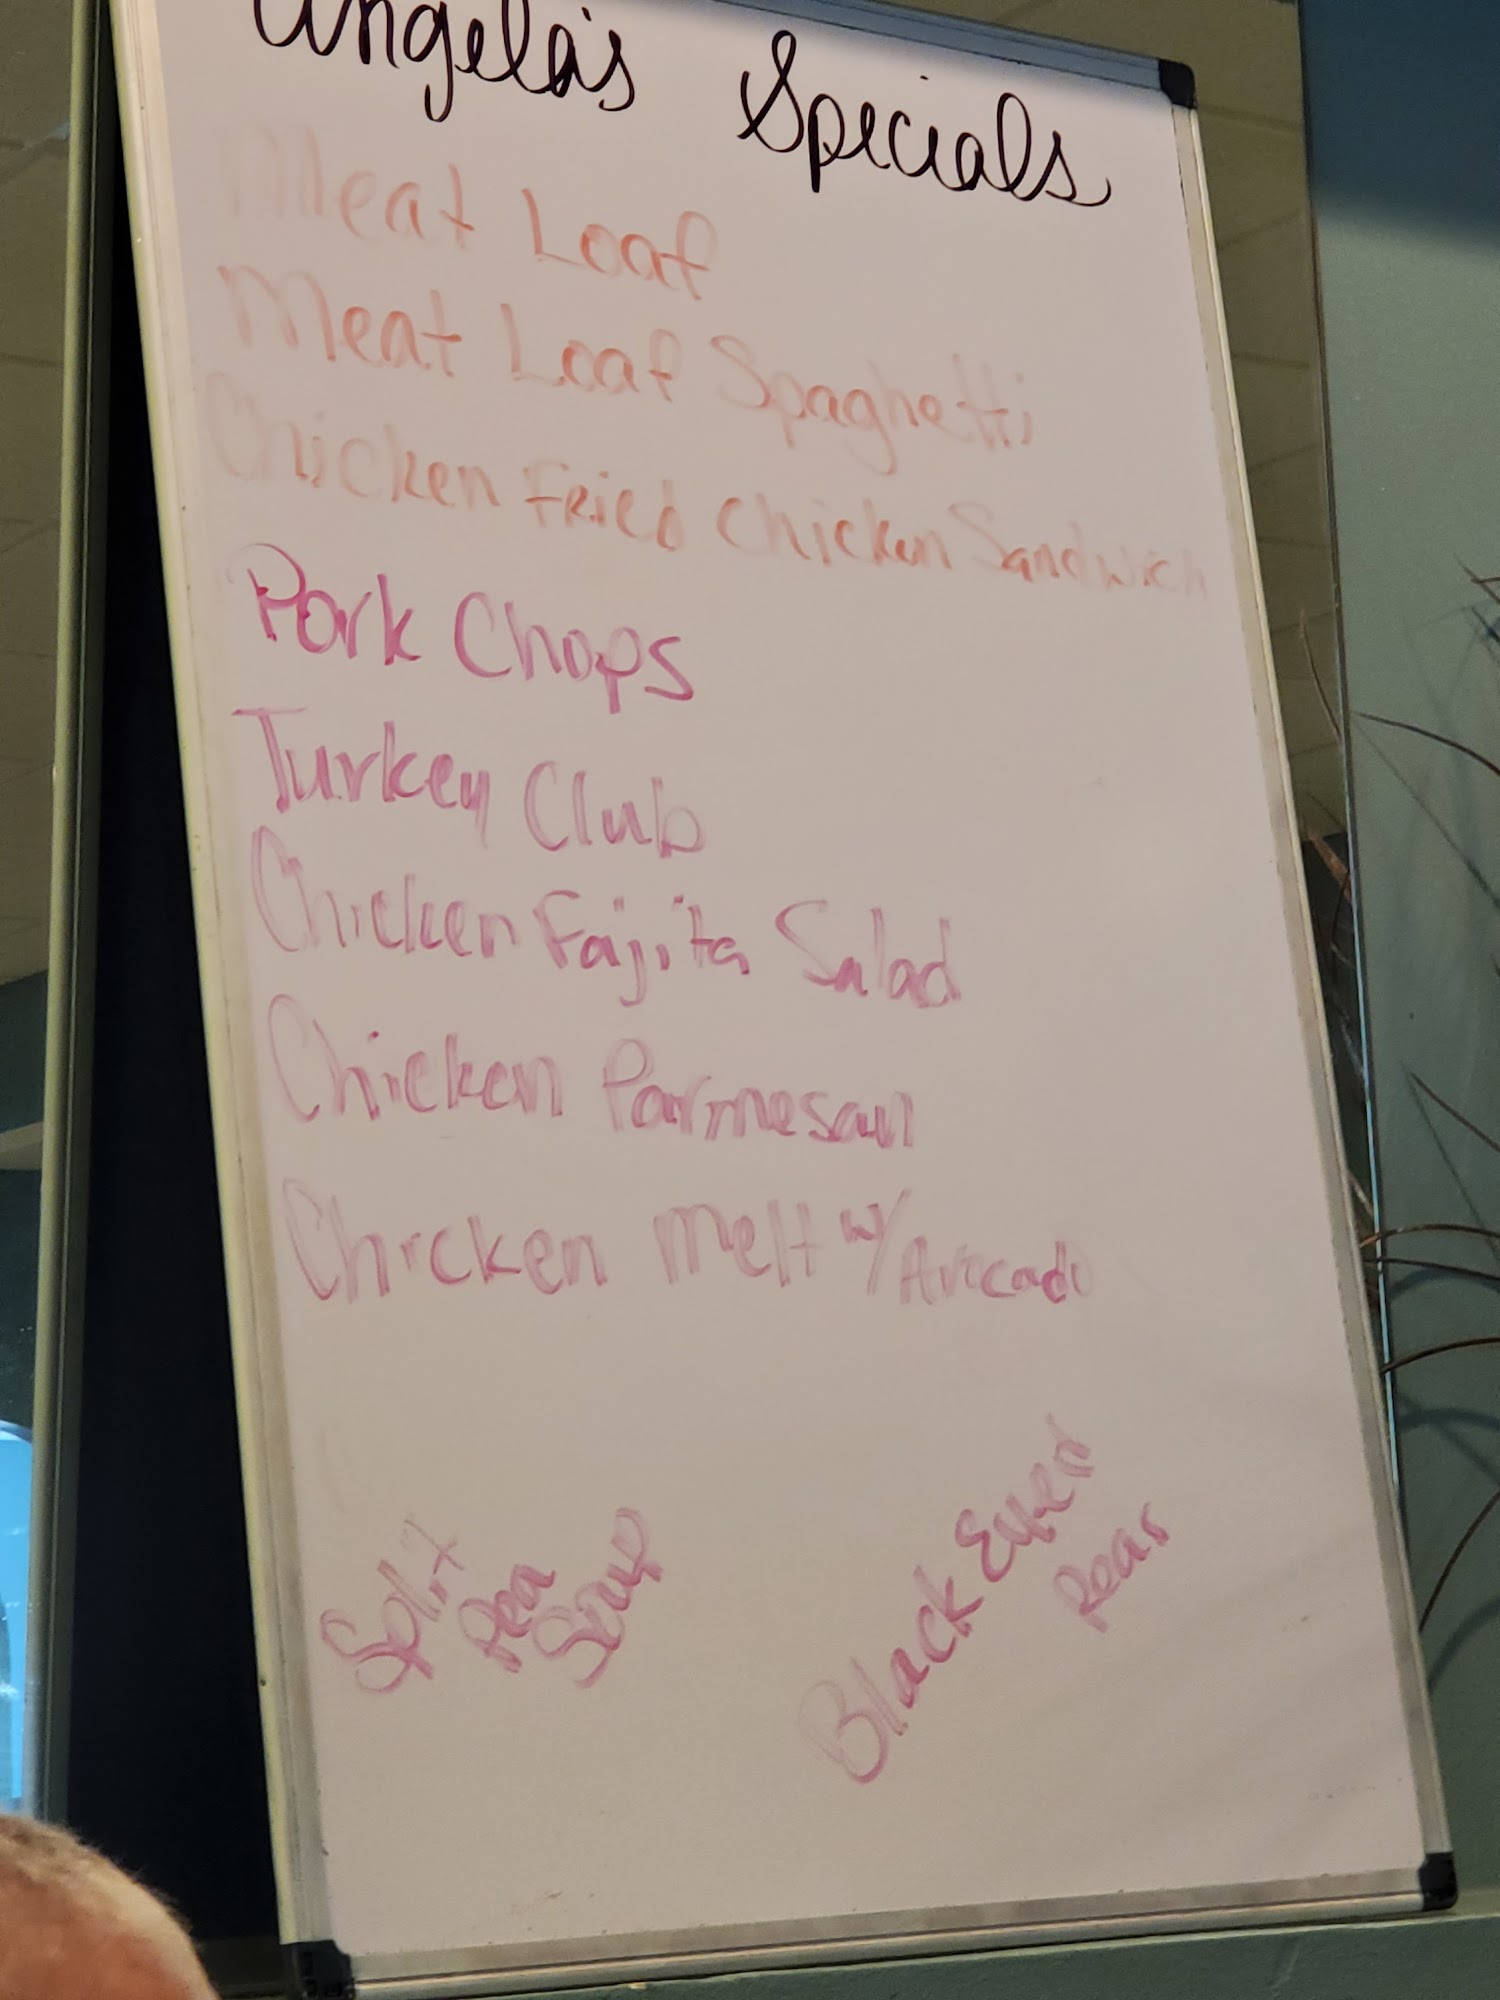 Angela's Specials
Meat Loaf
Meat Loaf Spaghetti
Chicken Fried Chicken Sandwich
Pork Chops
Turkey Club
Chicken Fajita Salad
Chicken Parmesan
Chicken Melt w/ Avocado
Split
Pea
Soup
Black Eyed
Peas